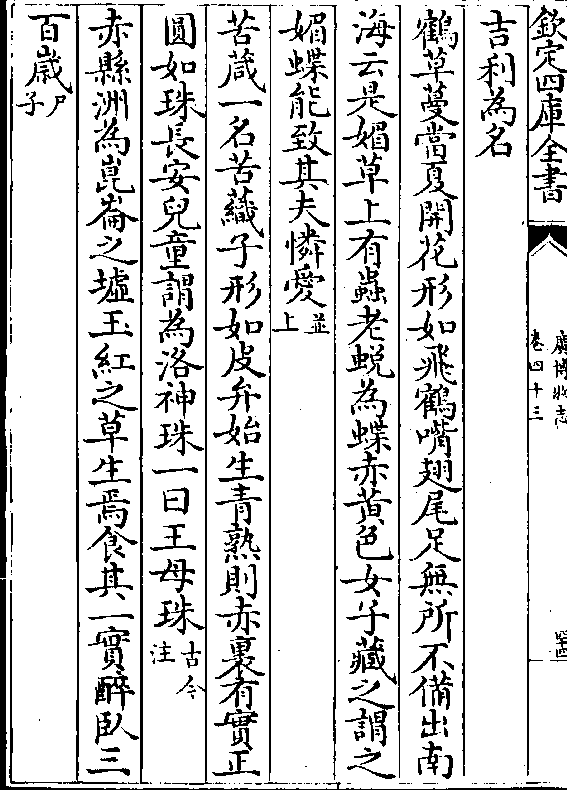 欽定四庫全書
廣博物志
卷四十三
吉利為名
鶴草蔓當夏開花形如飛鶴嘴翅尾足無所不備出南
海云是媚草上有蟲老蛻為蝶赤黃色女子藏之謂之
媚蝶能致其夫憐愛並上
苦蔵一名苦蘵子形如皮弁始生青熟則赤裏有實正
圓如珠長安兒童謂為洛神珠一曰王母珠古今注
赤縣洲為崑崙之墟玉紅之草生焉食其一實醉臥三
百歲尸子